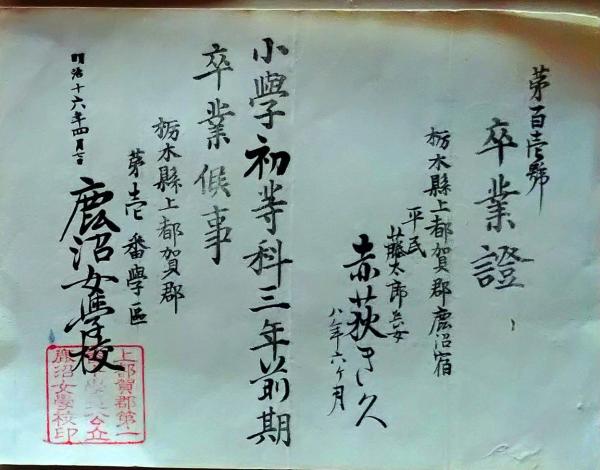 第百壱號
卒業證
栃木縣上都賀郡鹿沼宿
平民
藤太郎長女
赤荻きく
八年六ケ月
小學初等科三年前期
卒業候事
栃木縣上都賀郡
第壱番學區
鹿沼女學校
明治十六年四月
上都賀郡第一
公立
鹿沼女學校印